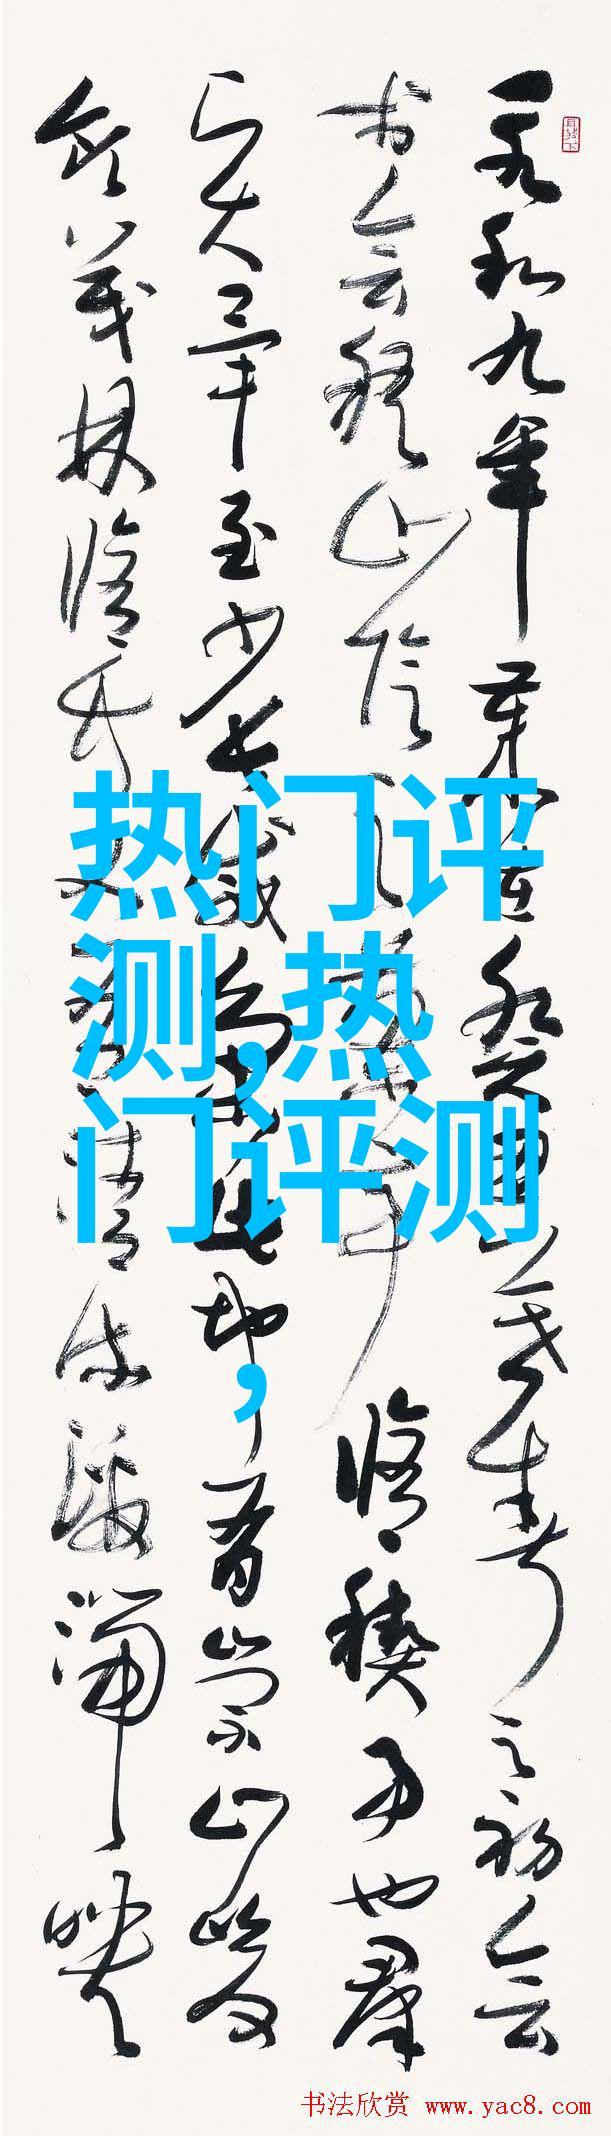 永和九年歲在癸丑暮春之初会
于会稽山陰之蘭亭修禊事也群
賢畢至少長咸集此地有崇山峻
領茂林修竹又有清流激湍映
热门评
测,热
门评测
,
书法欣赏 www.yac8.com